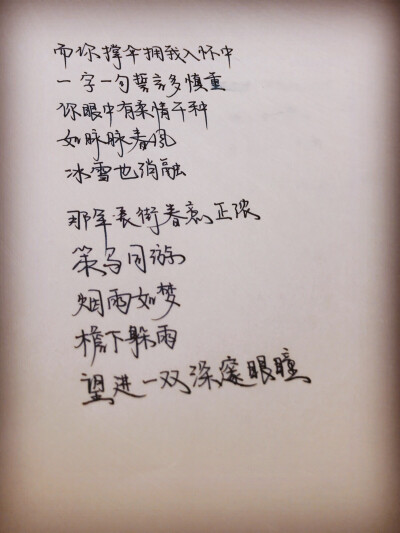 而你撑伞拥我入怀中
一字一句誓言多慎重
你眼中有柔情千种
如脉脉春风
冰雪也消融
那年长街春意正浓
策马同游
烟雨如梦
檐下躲雨
望进一双深邃眼瞳